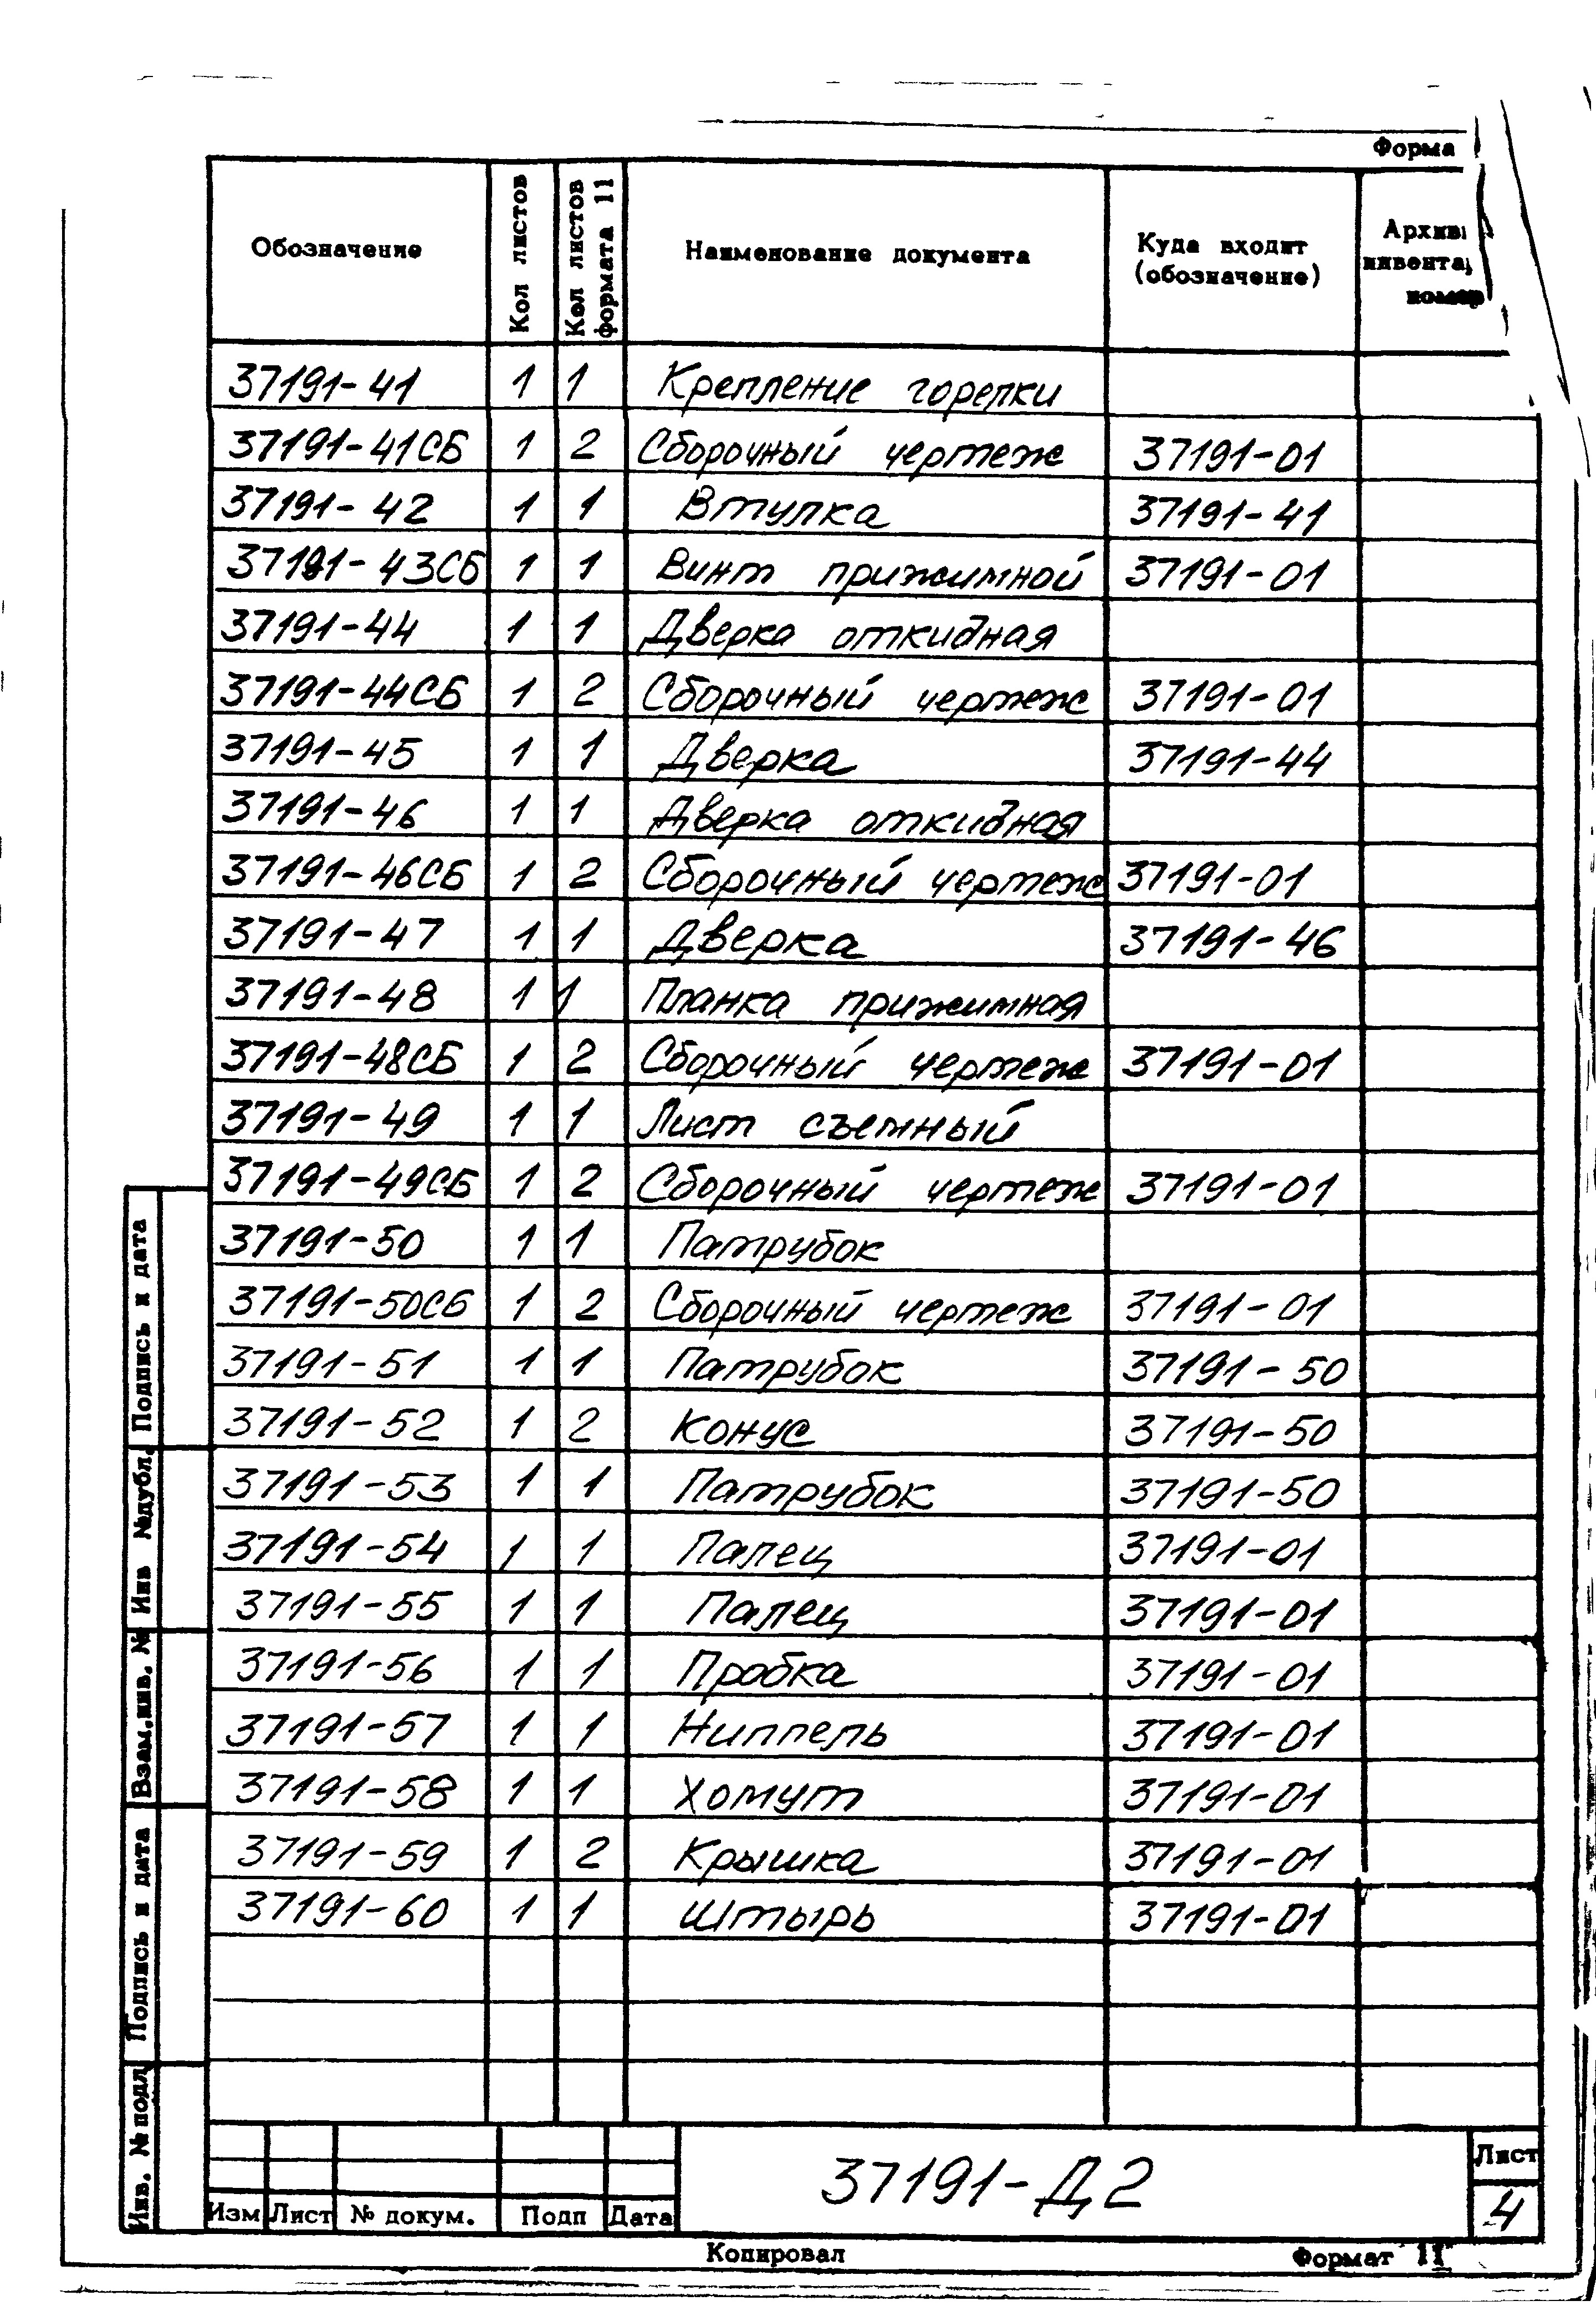 Форма
Обозначение
Кол листов
Кол листов формата 11
Наименование документа
Куда входит (обозначение)
37191-41 1 1 Крепление горелки
37191-41СБ 1 2 Сборочный чертеж 37191-01
37191-42 1 1 Втулка 37191-41
37191-43СБ 1 1 Винт прижимной 37191-01
37191-44 1 1 Дверка откидная
37191-44СБ 1 2 Сборочный чертеж 37191-01
37191-45 1 1 Дверка 37191-44
37191-46 1 1 Дверка откидная
37191-46СБ 1 2 Сборочный чертеж 37191-01
37191-47 1 1 Дверка 37191-46
37191-48 1 1 Планка прижимная
37191-48СБ 1 2 Сборочный чертеж 37191-01
37191-49 1 1 Лист съемный
37191-49СБ 1 2 Сборочный чертеж 37191-01
37191-50 1 1 Патрубок
37191-50СБ 1 2 Сборочный чертеж 37191-01
37191-51 1 1 Патрубок 37191-50
37191-52 1 2 Конус 37191-50
37191-53 1 1 Патрубок 37191-50
37191-54 1 1 Палец 37191-01
37191-55 1 1 Палец 37191-01
37191-56 1 1 Пробка 37191-01
37191-57 1 1 Ниппель 37191-01
37191-58 1 1 Хомут 37191-01
37191-59 1 2 Крышка 37191-01
37191-60 1 1 Штырь 37191-01
Подпись и дата
Инв №дубл.
Взам.инв. №
Подпись и дата
Инв. № подл
Изм Лист № докум. Подп Дата
37191-Д2
Лист
4
Копировал
Формат 11